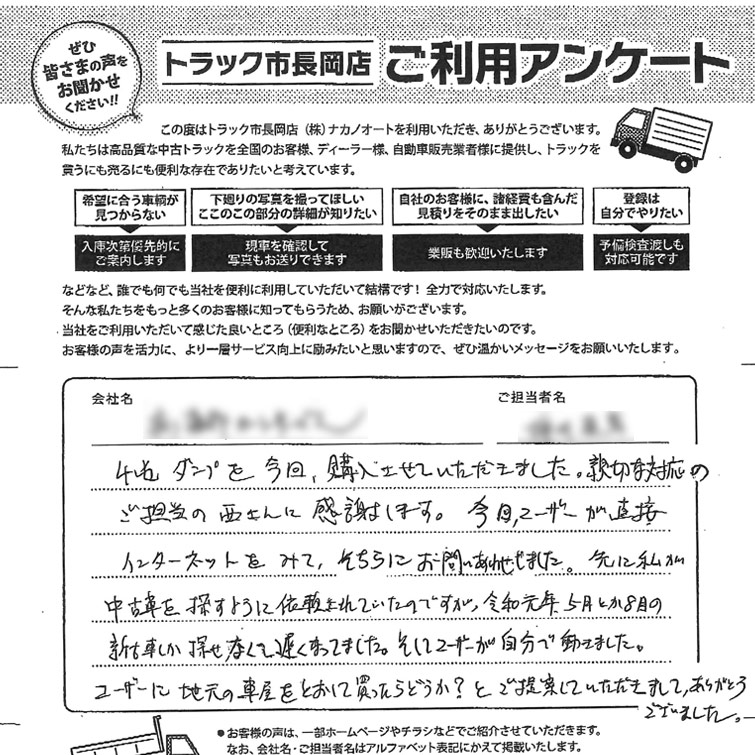 ぜひ
皆さまの声を
お聞かせ
ください!!
トラック市長岡店 ご利用アンケート
この度はトラック市長岡店（株）ナカノオートを利用いただき、ありがとうございます。
私たちは高品質な中古トラックを全国のお客様、ディーラー様、自動車販売業者様に提供し、トラックを
買うにも売るにも便利な存在でありたいと考えています。
希望に合う車輌が
見つからない
入庫次第優先的に
ご案内します
下廻りの写真を撮ってほしい
ここのこの部分の詳細が知りたい
現車を確認して
写真もお送りできます
自社のお客様に、諸経費も含んだ
見積りをそのまま出したい
業販も歓迎いたします
登録は
自分でやりたい
予備検査渡しも
対応可能です
などなど、誰でも何でも当社を便利に利用していただいて結構です！全力で対応いたします。
そんな私たちをもっと多くのお客様に知ってもらうため、お願がございます。
当社をご利用いただいて感じた良いところ（便利なところ）をお聞かせいただきたいのです。
お客様の声を活力に、より一層サービス向上に励みたいと思いますので、ぜひ温かいメッセージをお願いいたします。
会社名 ご担当者名
ダンプを今回、購入させていただきました。親切な対応の
ご担当の西さんに感謝します。今回、ユーザーが直接
インターネットをみて、そちらにお問いあわせました。先に私が
中古車を探すように依頼されていたのですが、令和元年5月とか8月の
新古車しか探せなくて遅くなってました。そしてユーザーが自分で動きました。
ユーザーに地元の車屋をとおして買ったらどうか？とご提案していただきまして、ありがとう
ございました。
●お客様の声は、一部ホームページやチラシなどでご紹介させていただきます。
なお、会社名・ご担当者名はアルファベット表記にかえて掲載いたします。